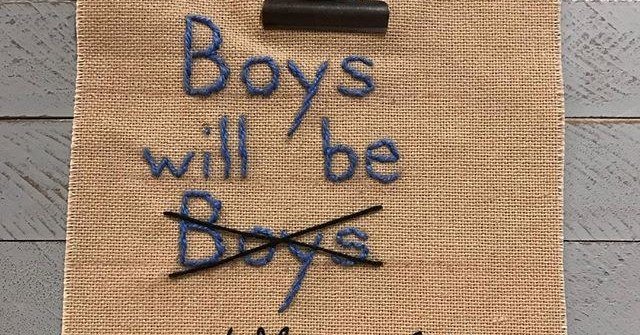 Boys
will be
Boys